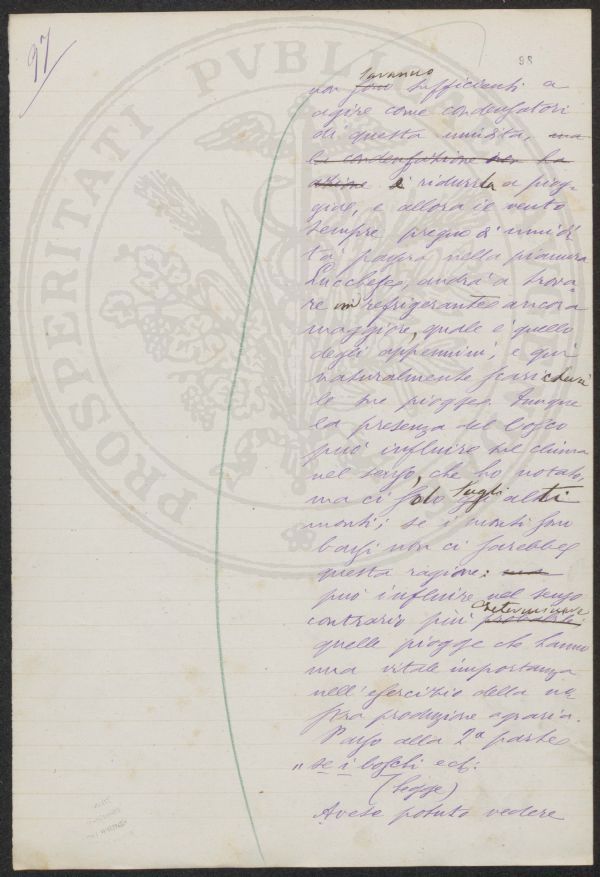 97
98
saranno
non sono sufficienti a
agire come condensatori
di questa umidità, ma
la condensazione non ha
azione e ridurla a piog-
gia, e allora il vento
sempre pregno d'umidi
tà passa nella pianura
Lucchese, andrà a trova
re un refrigerante ancora
maggiore, quale è quello
degli appennini, e qui
naturalmente scaricherà
le sue piogge. Dunque
la presenza del bosco
può influire sul clima
nel senso, che ho notato,
ma ci solo sugli alti
monti; se i monti son
bassi non ci sarebbe
questa ragione: ma
può influire nel senso
determinare
contrario più probabile
quelle piogge che hanno
una vitale importanza
nell'esercizio della no
stra produzione agraria.
Passo alla 2ª parte
" se i boschi ect:
(legge)
Avete potuto vedere
PROSPERITATI PVBLIC